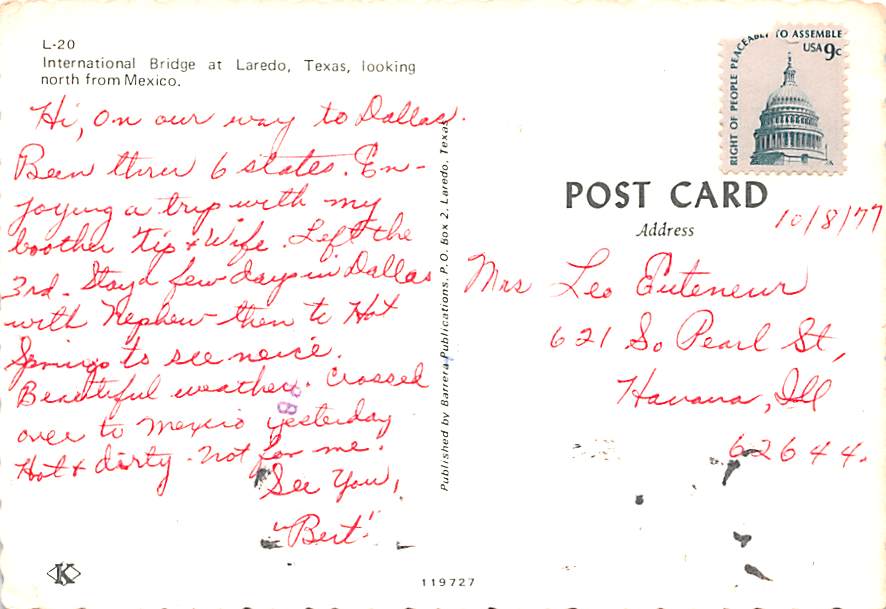 L-20
International Bridge at Laredo, Texas, looking
north from Mexico.
Hi, on our way to Dallas.
Been thru 6 states. En-
joying a trip with my
boother Tip & Wife. Left the
3rd. Stayd few days in Dallas
with Nephew - then to Hot
Springs to see neice.
Beautiful weather. Crossed
over to Mexico yesterday
Hot & dirty - not for me.
See You,
"Bert"
K
Published by Barrera Publications, P.O. Box 2, Laredo, Texas
119727
RIGHT OF PEOPLE PEACEABLY TO ASSEMBLE
USA 9c
POST CARD
Address
10/8/77
Mrs Leo Euteneur
621 So Pearl St,
Havana, Ill
62644.